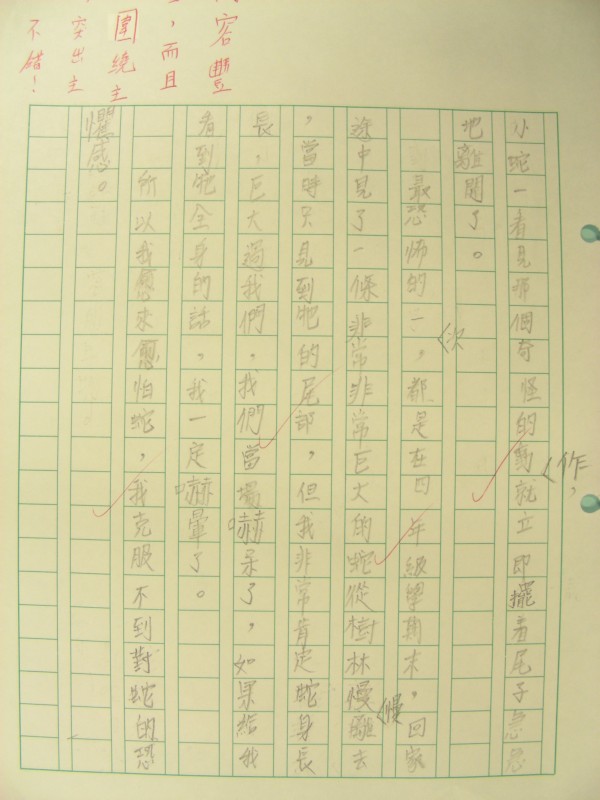 小蛇一看見那個奇怪的動作，就立即擺着尾子急急
地離開了。
最恐怖的一次，都是在四年級學期末，回家
途中見了一條非常非常巨大的蛇從樹林慢慢離去
，當時只見到牠的尾部，但我非常肯定蛇身長
長，巨大過我們，我們當場嚇呆了，如果給我
看到牠全身的話，我一定嚇暈了。
所以我愈來愈怕蛇，我克服不到對蛇的恐
懼感。
容豐
，而且
圍繞主
突出主
不錯！